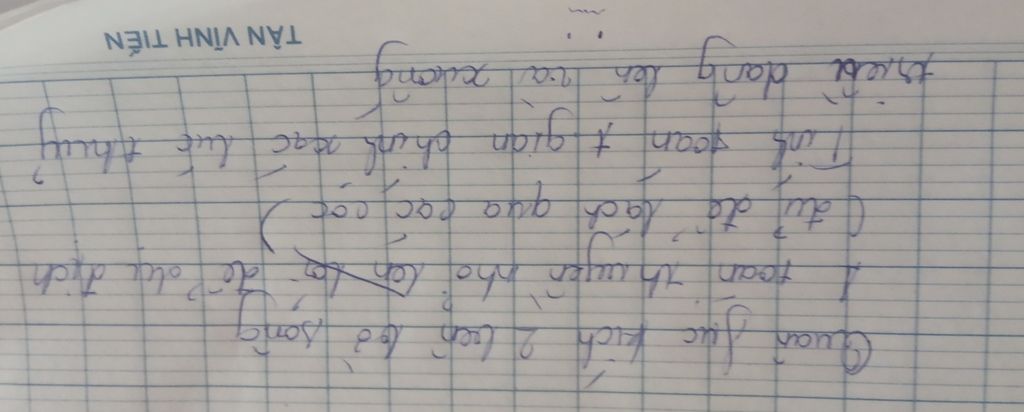 Quân phục kích 2 bên bờ sông
1 toán thuyền nhỏ lên để dụ địch
(đủ để lách qua các cọc)
Tính toán t gian chính xác lúc thuỷ
triều dâng lên và xuống
TÂN VĨNH TIẾN